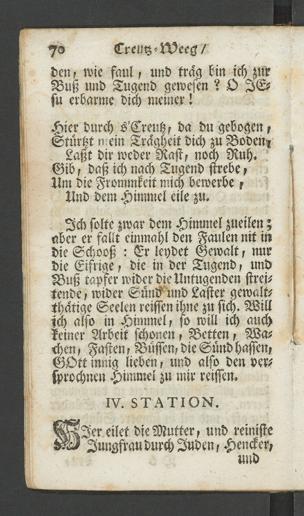 70 Creutz-Weeg/
den, wie faul, und träg bin ich zur
Buß und Tugend gewesen? O JE-
su erbarme dich meiner!
Hier durch s'Creutz, da du gebogen,
Stürtzt mein Trägheit dich zu Boden,
Laßt dir weder Rast, noch Ruh.
Gib, daß ich nach Tugend strebe,
Um die Frommkeit mich bewerbe,
Und dem Himmel eile zu.
Ich solte zwar dem Himmel zueilen;
aber er fallt einmahl den Faulen nit in
die Schooß: Er leydet Gewalt, nur
die Eifrige, die in der Tugend, und
Buß tapfer wider die Untugenden strei-
tende, wider Sünd und Laster gewalt-
thätige Seelen reissen ihne zu sich. Will
ich also in Himmel, so will ich auch
keiner Arbeit schonen, Betten, Wa-
chen, Fasten, Büssen, die Sünd hassen,
GOtt innig lieben, und also den ver-
sprochnen Himmel zu mir reissen.
IV. STATION.
HIer eilet die Mutter, und reiniste
Jungfrau durch Juden, Hencker,
und